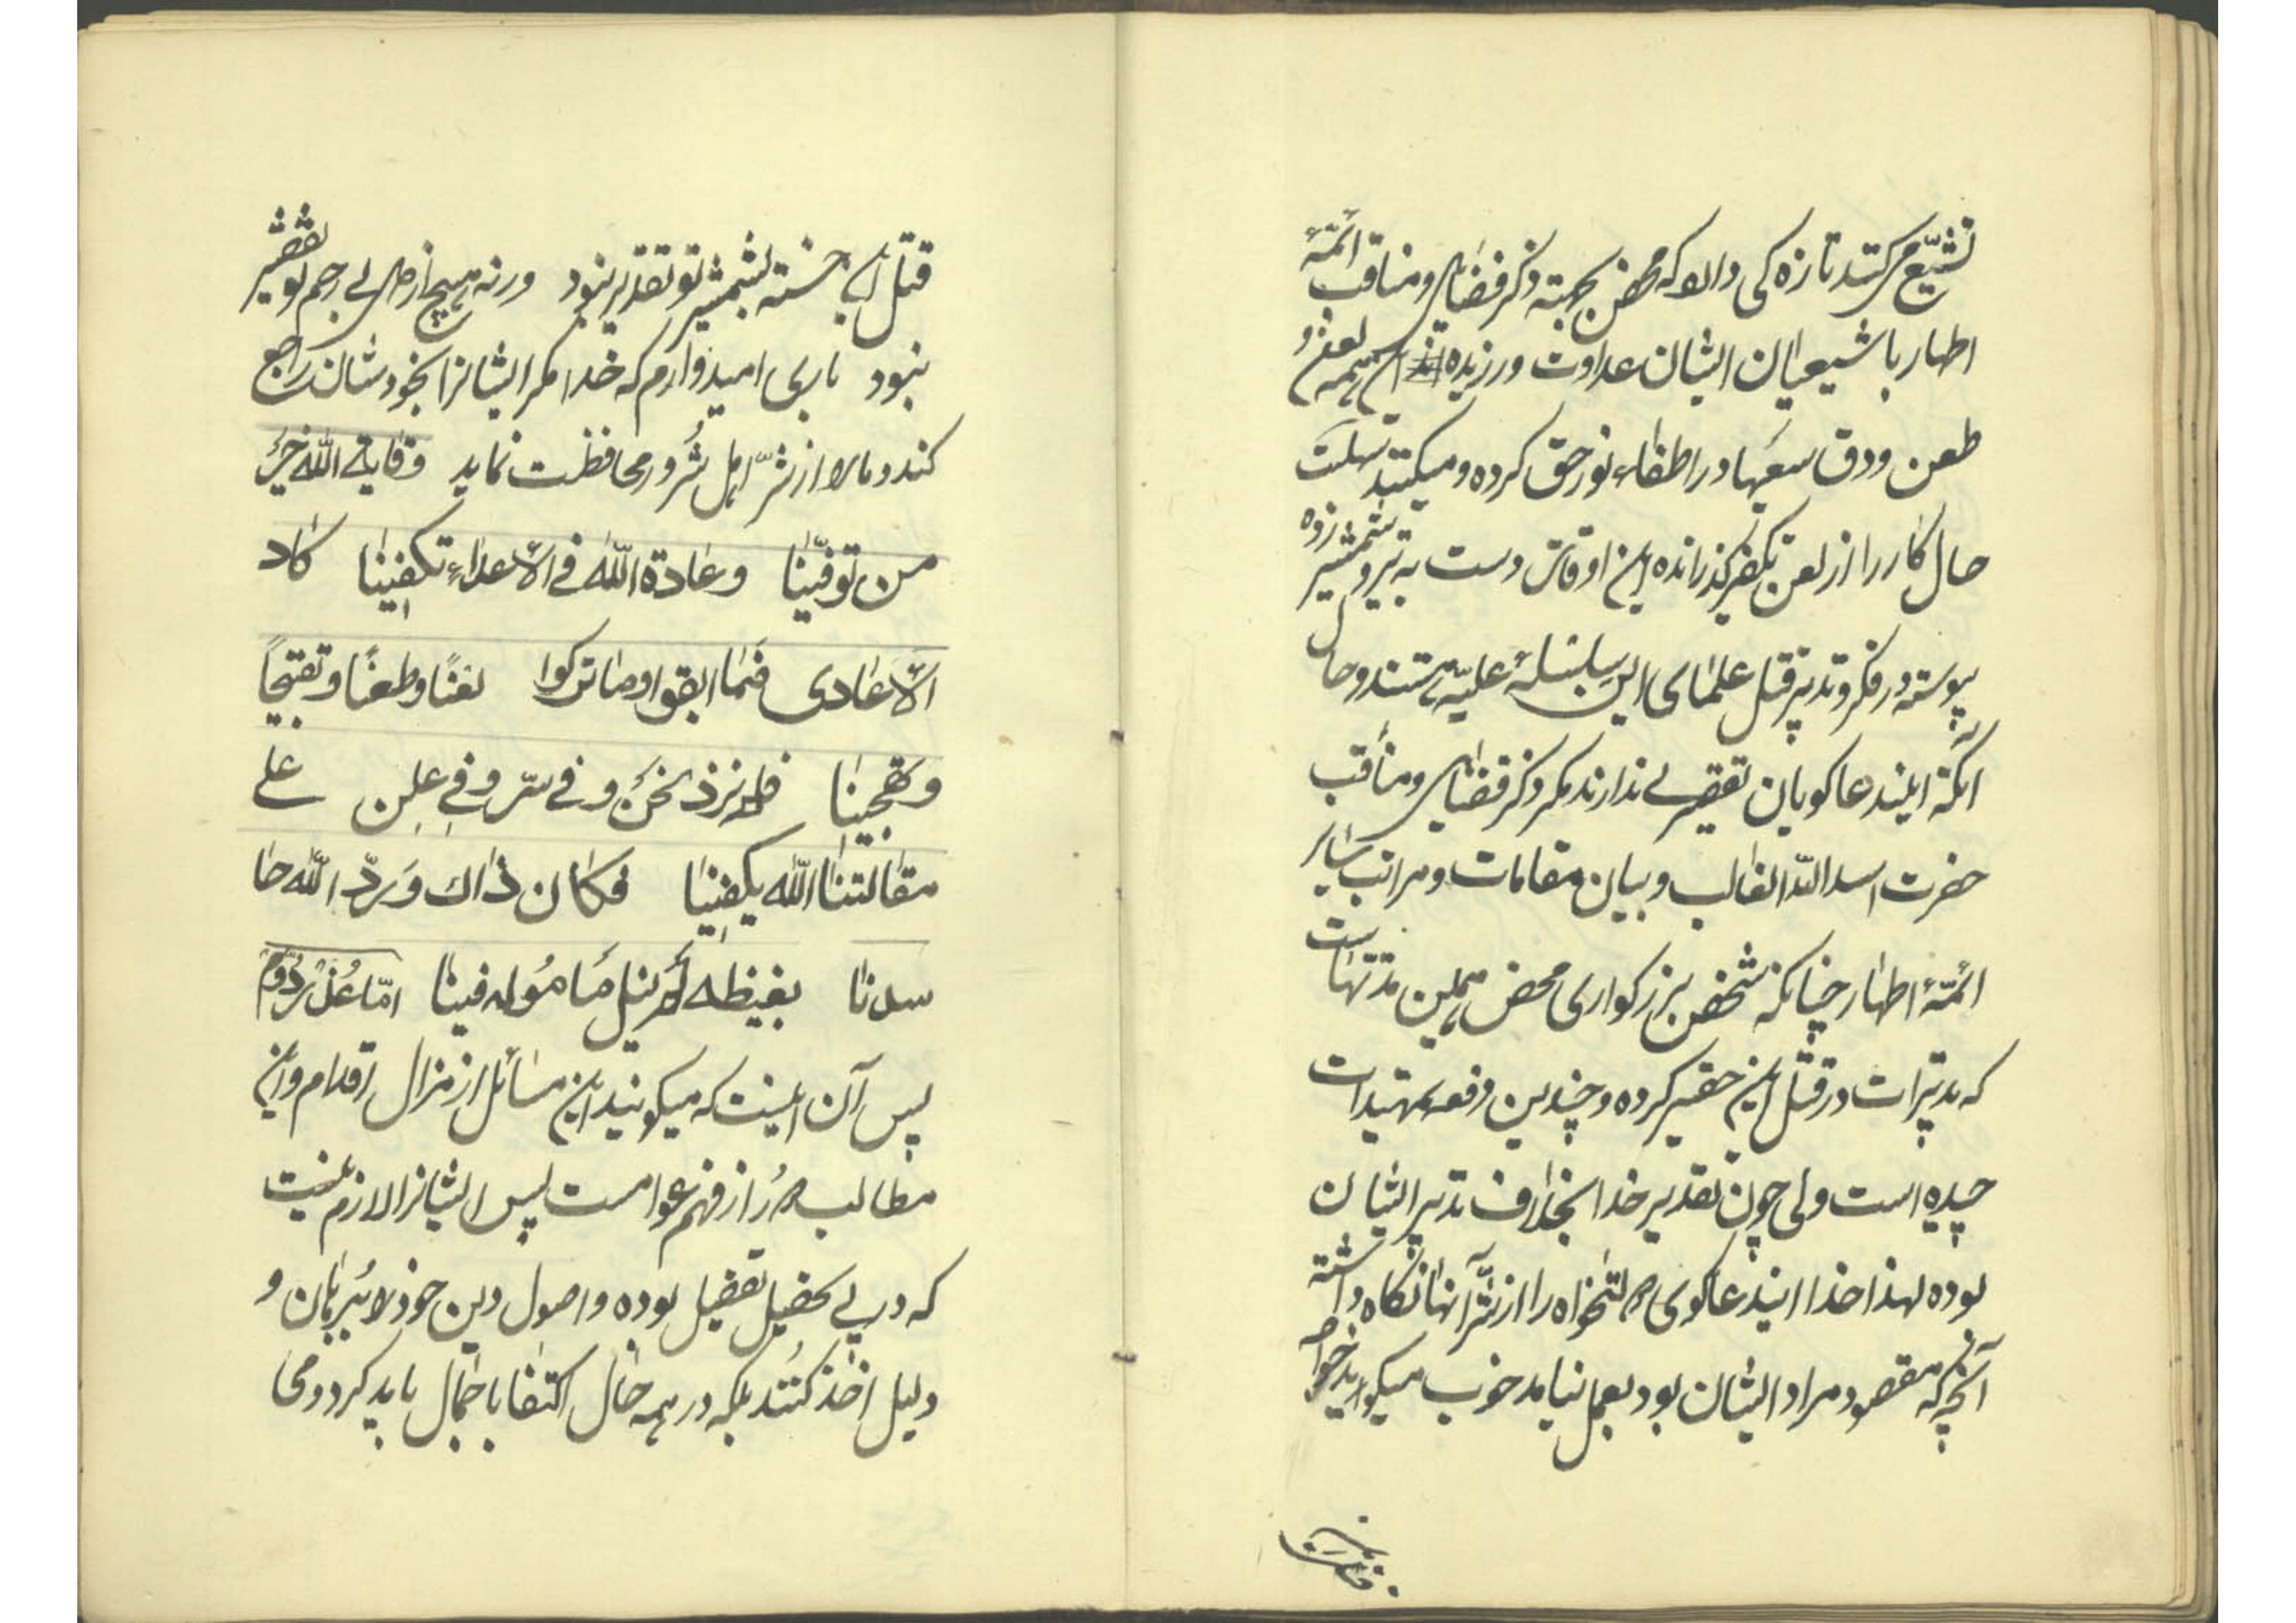 تشیّع میکنند تازه کی والا که محض بجهتهٔ ذکر فضایل و مناقب ائمّهٔ
اطهار با شیعیان ایشان عداوت ورزیده این همه لعن و
طعن ودق سعیها در اطفاء نور حق کرده و میکنند
حال کار را از لعن تکفیر گذرانده این اوقات دست به تیر و شمشیر زده
پیوسته در فکر و تدبیر قتل علمای این سلسلهٔ علیّه هستند و حال
آنکه ایند عاکویان تقصیری ندارند مکر ذکر فضایل و مناقب
حضرت اسد اللّه الغالب و بیان مقامات و مراتب سایر
ائمّهٔ اطهار چنانکه شخص بزرکواری محض همین مدتهاست
که تدبیرات در قتل این حقیر کرده و چندین دفعه تمهیدات
چیده است ولی چون تقدیر خدا بخلاف تدبیر ایشان
بوده لهذا خدا ایند عاکوی دولتخواه را از شرّ آنها نکاه داشته
آنچه که مقصود مراد ایشان بود بعمل نیامد خوب میکوید خواجه
قتل این خسته بشمشیر تو تقدیر نبود ورنه هیچ از دل بی رحم تو تقصیر
نبود باری امیدوارم که خدا مکر ایشانرا بخودشان راجع
کند و ما را از شرّ اهل شرور محافظت نماید وقایة اللّه خیرٌ
من توقّینا وعادة اللّه فی الاعداء تکفینا کاد
الاعادی فما ابقوا وما ترکوا لعنًا وطعنًا وتقبیحاً
وتهجینا فلم نزد نحن و فی سرّ و فی علن علی
مقالتنا اللّه یکفینا فکان ذاک وردّ اللّه حا
سدنا بغیظه لم ینل مأموله فینا امّا عذر دوم
پس آن اینست که میکویند این مسائل از مزال اقدام و این
مطالب دور از فهم عوامست پس ایشانرا لازم نیست
که در پی تحصیل تفصیل بوده و اصول دین خود را ببرهان و
دلیل اخذ کنند بلکه در همه حال اکتفا باجمال باید کرد و می